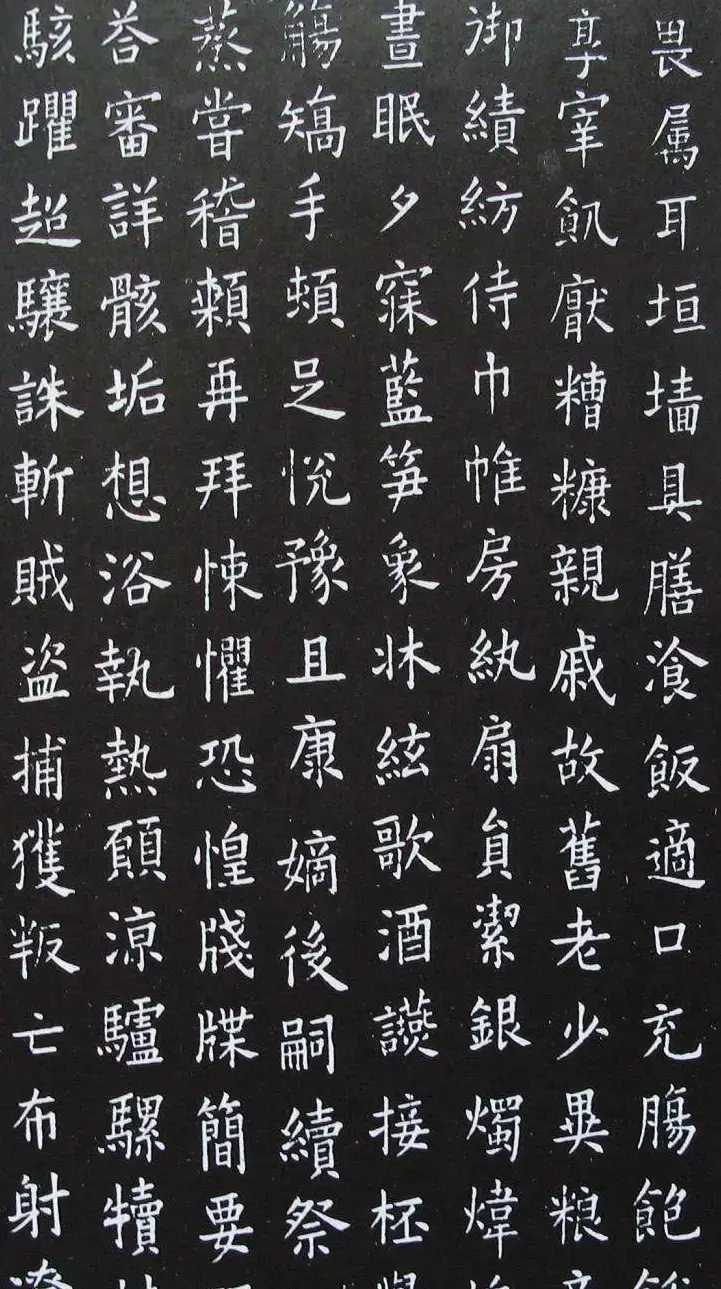 畏属耳垣墻具膳湌飯適口充膓飽
享宰飢厭糟糠親戚故舊老少異粮
御績紡侍巾帷房紈扇員潔銀燭煒
晝眠夕寐藍笋象牀絃歌酒讌接杯
觴矯手頓足悅豫且康嫡後嗣續祭
蒸嘗稽顙再拜悚懼恐惶牋牒簡要
荅審詳骸垢想浴執熱願涼驢騾犢
駭躍超驤誅斬賊盜捕獲叛亡布射